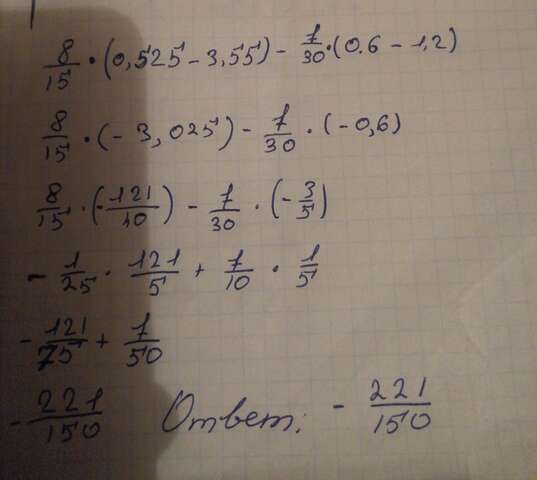 8/15 · (0,525 - 3,55) - 7/30 · (0.6 - 1,2)
8/15 · (- 3,025) - 7/30 · (-0,6)
8/15 · (-121/40) - 7/30 · (-3/5)
- 1/25 · 121/5 + 7/10 · 1/5
- 121/75 + 7/50
- 221/150 Ответ: - 221/150